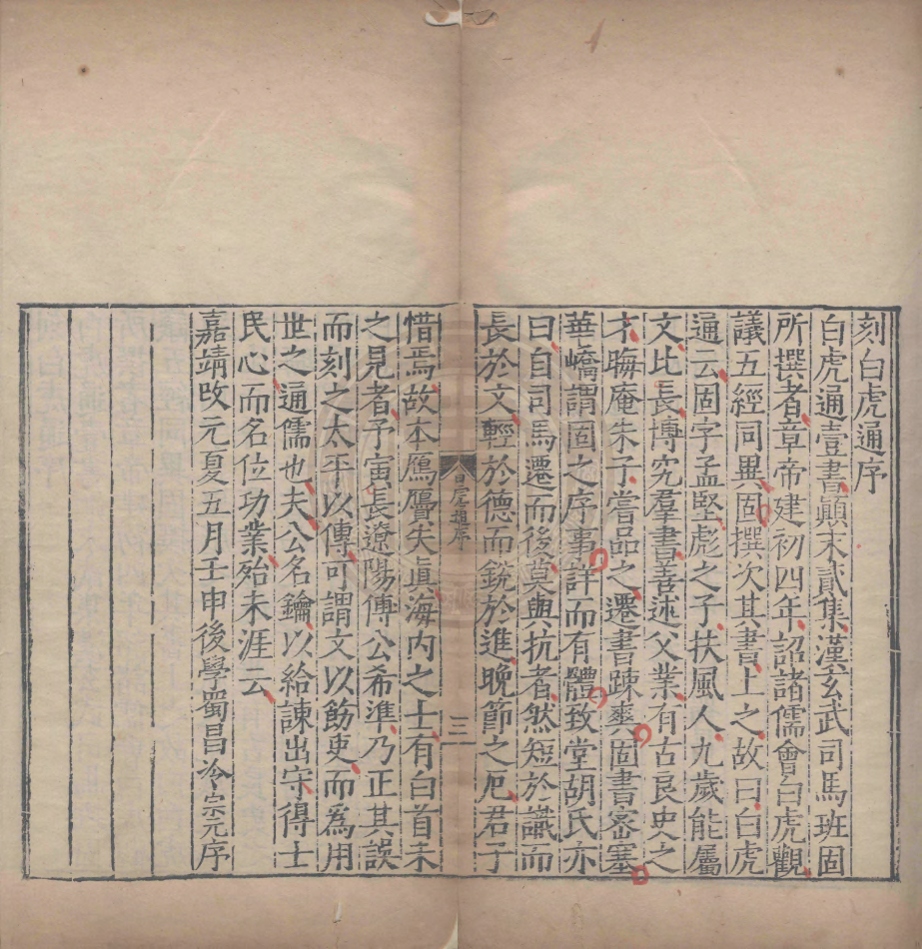 刻白虎通序
白虎通壹書顛末貳集漢玄武司馬班固
所撰者章帝建初四年詔諸儒會白虎觀
議五經同異固撰次其書上之故曰白虎
通云固字孟堅彪之子扶風人九歲能屬
文比長博究羣書善述父業有古良史之
才晦庵朱子嘗品之遷書踈爽固書密塞
華嶠謂固之序事詳而有體致堂胡氏亦
曰自司馬遷而後莫與抗者然短於識而
長於文輕於德而銳於進晚節之厄君子
惜焉故本鴈贗失眞海内之士有白首未
之見者予寅長遼陽傅公希準乃正其誤
而刻之太平以傳可謂文以飭吏而爲用
世之通儒也夫公名鑰以給諫出守得士
民心而名位功業殆未涯云
嘉靖改元夏五月壬申後學蜀昌冷宗元序
白虎通序
三